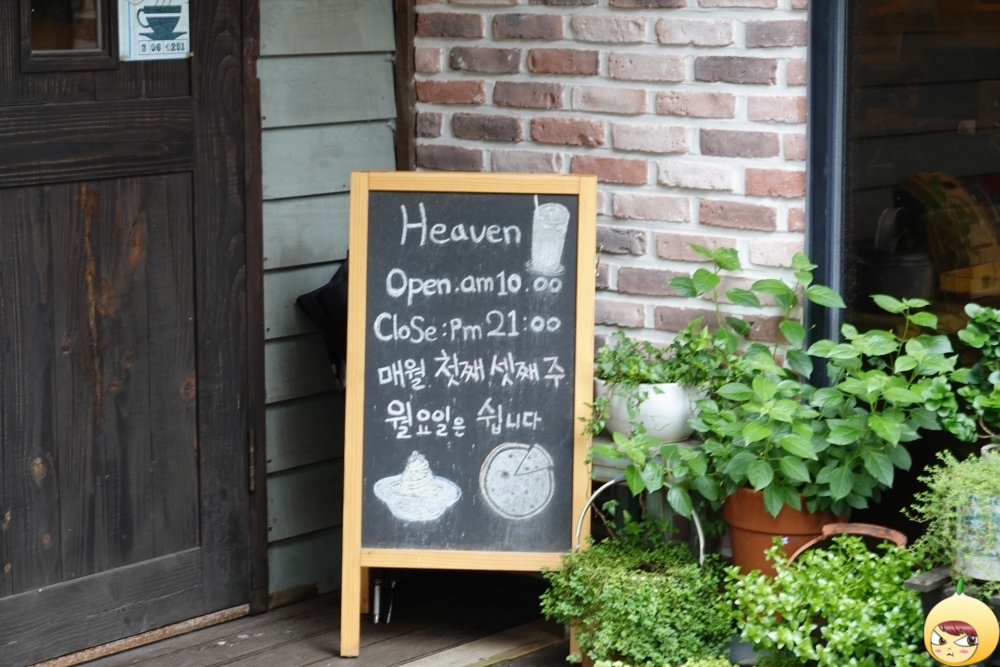 Heaven
Open.am10.00
Close:Pm21:00
매월 첫째,셋째주
월요일은 쉽니다